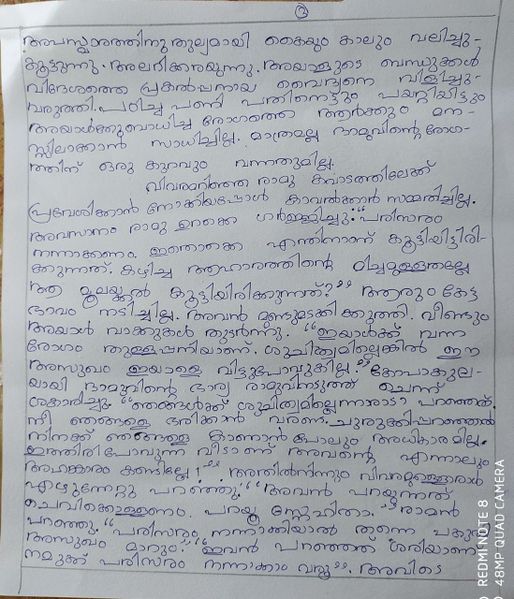 3
അപസ്മാരത്തിനു തുല്യമായി കൈയും കാലും വലിച്ചു-
കൂട്ടുന്നു. അലറിക്കരയുന്നു. അയാളുടെ ബന്ധുക്കൾ
വിദേശത്തെ പ്രകൽപ്പനായ വൈദ്യനെ വിളിച്ചു-
വരുത്തി. പഠിച്ച പണി പതിനെട്ടും പയറ്റിയിട്ടും
അയാൾക്കുബാധിച്ച രോഗത്തെ ആർക്കും മന-
സ്സിലാക്കാൻ സാധിച്ചില്ല. മാത്രമല്ല ദാമുവിന്റെ രോഗ-
ത്തിന് ഒരു കുറവും വന്നതുമില്ല.
വിവരമറിഞ്ഞ രാമു കവാടത്തിലേക്ക്
പ്രവേശിക്കാൻ നോക്കിയപ്പോൾ കാവൽക്കാർ സമ്മതിച്ചില്ല.
അവസാനം രാമു ഉറക്കെ ഗർജ്ജിച്ചു. "പരിസരം
നന്നാക്കണം. ഇതൊക്കെ എന്തിനാണ് കൂട്ടിയിട്ടിരി-
ക്കുന്നത്. കഴിച്ച ആഹാരത്തിന്റെ മിച്ചമുള്ളതല്ലേ
ആ മൂലയ്ക്കൽ കൂട്ടിയിരിക്കുന്നത്?" ആരും കേട്ട
ഭാവം നടിച്ചില്ല. അവൻ മുണ്ടുമടക്കി ക്കുത്തി. വീണ്ടും
അയാൾ വാക്കുകൾ തുടർന്നു. "ഇയാൾക്ക് വന്ന
രോഗം തുള്ളപ്പനിയാണ്. ശുചിത്വമില്ലെങ്കിൽ ഈ
അസുഖം ഇയാളെ വിട്ടുപോവുകില്ല." കോപാകുല-
യായി ദാമുവിന്റെ ഭാര്യ രാമുവിനടുത്ത് ചെന്ന്
ശകാരിച്ചു. "ഞങ്ങൾക്ക് ശുചിത്വമില്ലെന്നാരാടാ പറഞ്ഞത്.
നീ ഞങ്ങളെ ഭരിക്കാൻ വരണ്ട. ചുരുക്കിപ്പറഞ്ഞാൽ
നിനക്ക് ഞങ്ങളെ കാണാൻ പോലും അധികാരമില്ല.
ഇത്തിരിപോവുന്ന വീടാണ് അവന്റെ എന്നാലും
അഹങ്കാരം കണ്ടില്ലേ!" അതിൽനിന്നും വിവരമുള്ളൊരാൾ
എഴുന്നേറ്റു പറഞ്ഞു. "അവൻ പറയുന്നത്
ചെവിക്കൊള്ളണം. പറയൂ സ്നേഹിതാ." രാമൻ
പറഞ്ഞു. "പരിസരം നന്നാക്കിയാൽ തന്നെ പകുതി
അസുഖം മാറും." "ഇവൻ പറഞ്ഞത് ശരിയാണ്
നമുക്ക് പരിസരം നന്നാക്കാം വരൂ". അവിടെ
REDMI NOTE 8
48MP QUAD CAMERA